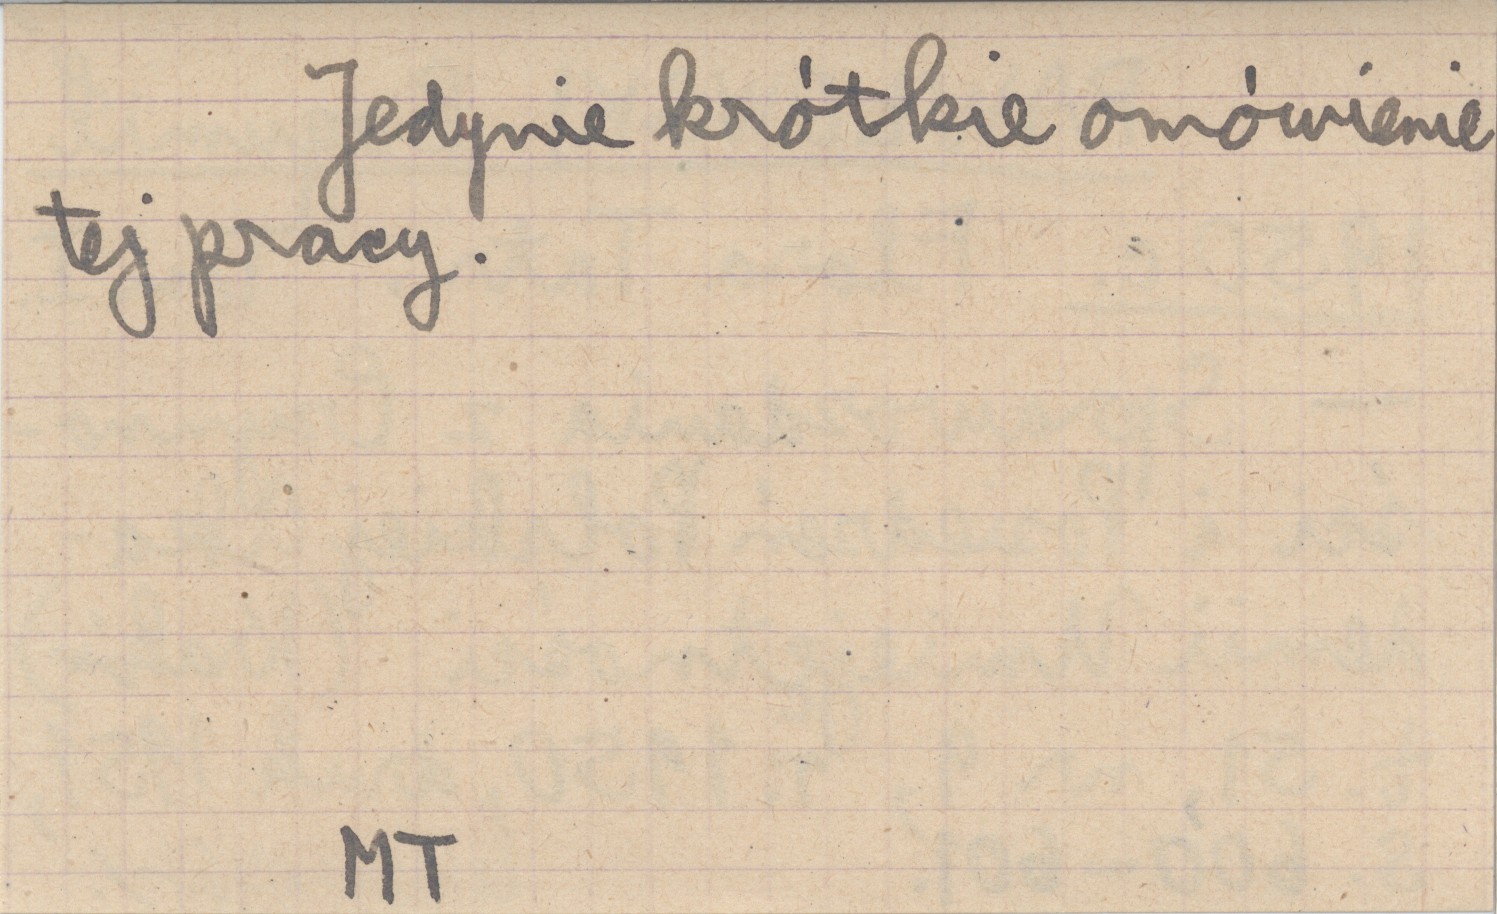 Jedynie krótkie omówienie
tej pracy.
MT